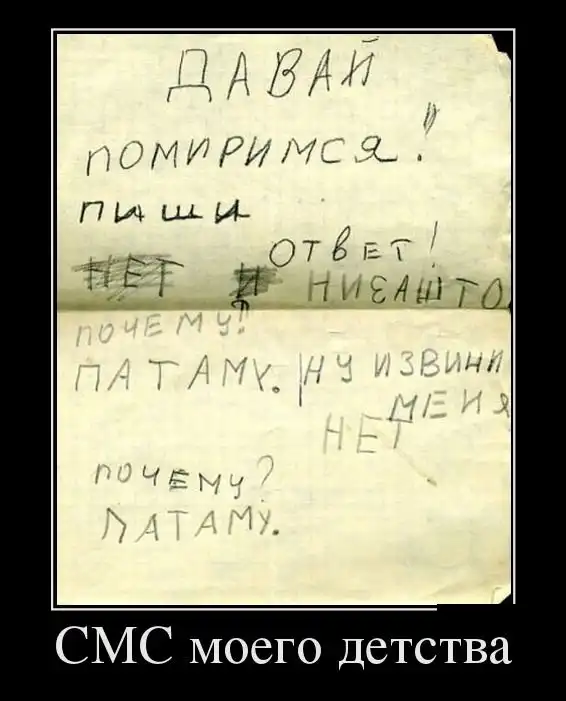 ДАВАЙ
ПОМИРИМСЯ!
ПИШИ
ОТВЕТ!
НЕТ И НИЗАШТО
ПОЧЕМУ!!
ПАТАМУ. НУ ИЗВИНИ
МЕНЯ
НЕТ
ПОЧЕМУ?
ПАТАМУ.
СМС моего детства